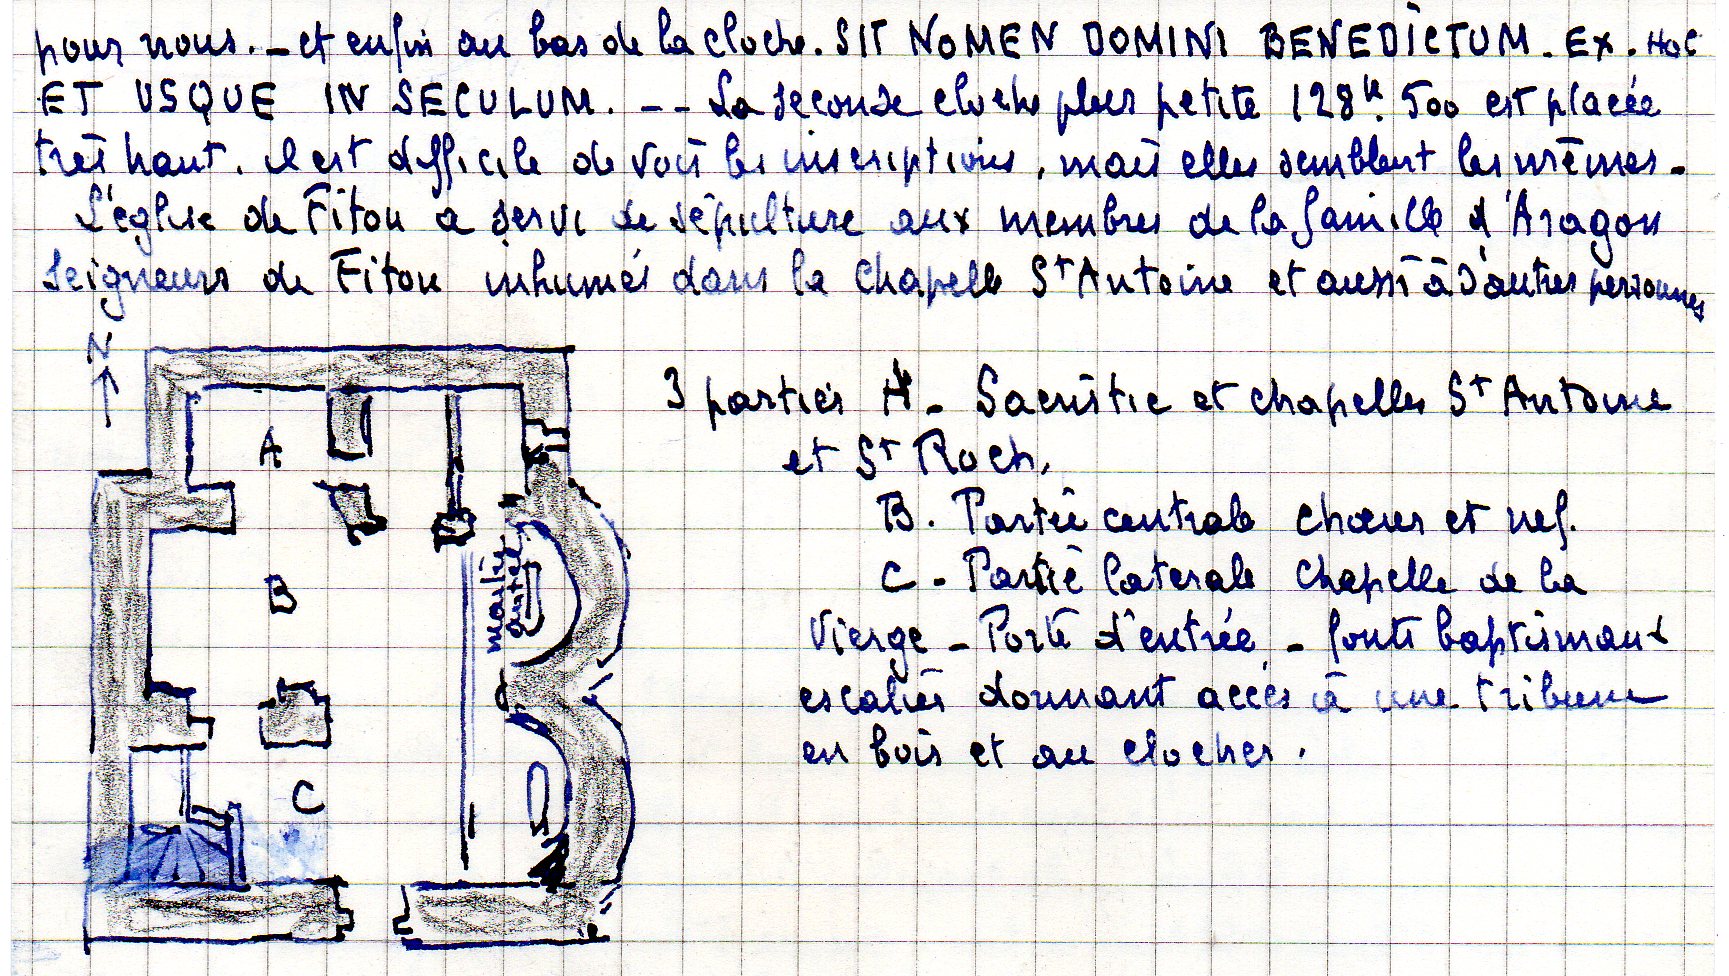 pour nous. _ et enfin au bas de la cloche. SIT NOMEN DOMINI BENEDICTUM. EX. HOC
ET USQUE IN SECULUM. -- La seconde cloche plus petite 128k. 500 est placée
très haut. il est difficile de voir les inscriptions, mais elles semblent les mêmes -
L'église de Fitou a servi de sépulture aux membres de la famille d'Aragon
Seigneurs de Fitou inhumés dans la Chapelle St Antoine et aussi à d'autres personnes
N
3 parties A - Sacristie et chapelles St Antoine
et St Roch,
B. Partie centrale chœur et nef.
C - Partie laterale Chapelle de la
Vierge - Porte d'entrée - fonts baptismaux
escalier donnant accès à une tribune
en bois et au clocher.
A
B
maître
autel
C